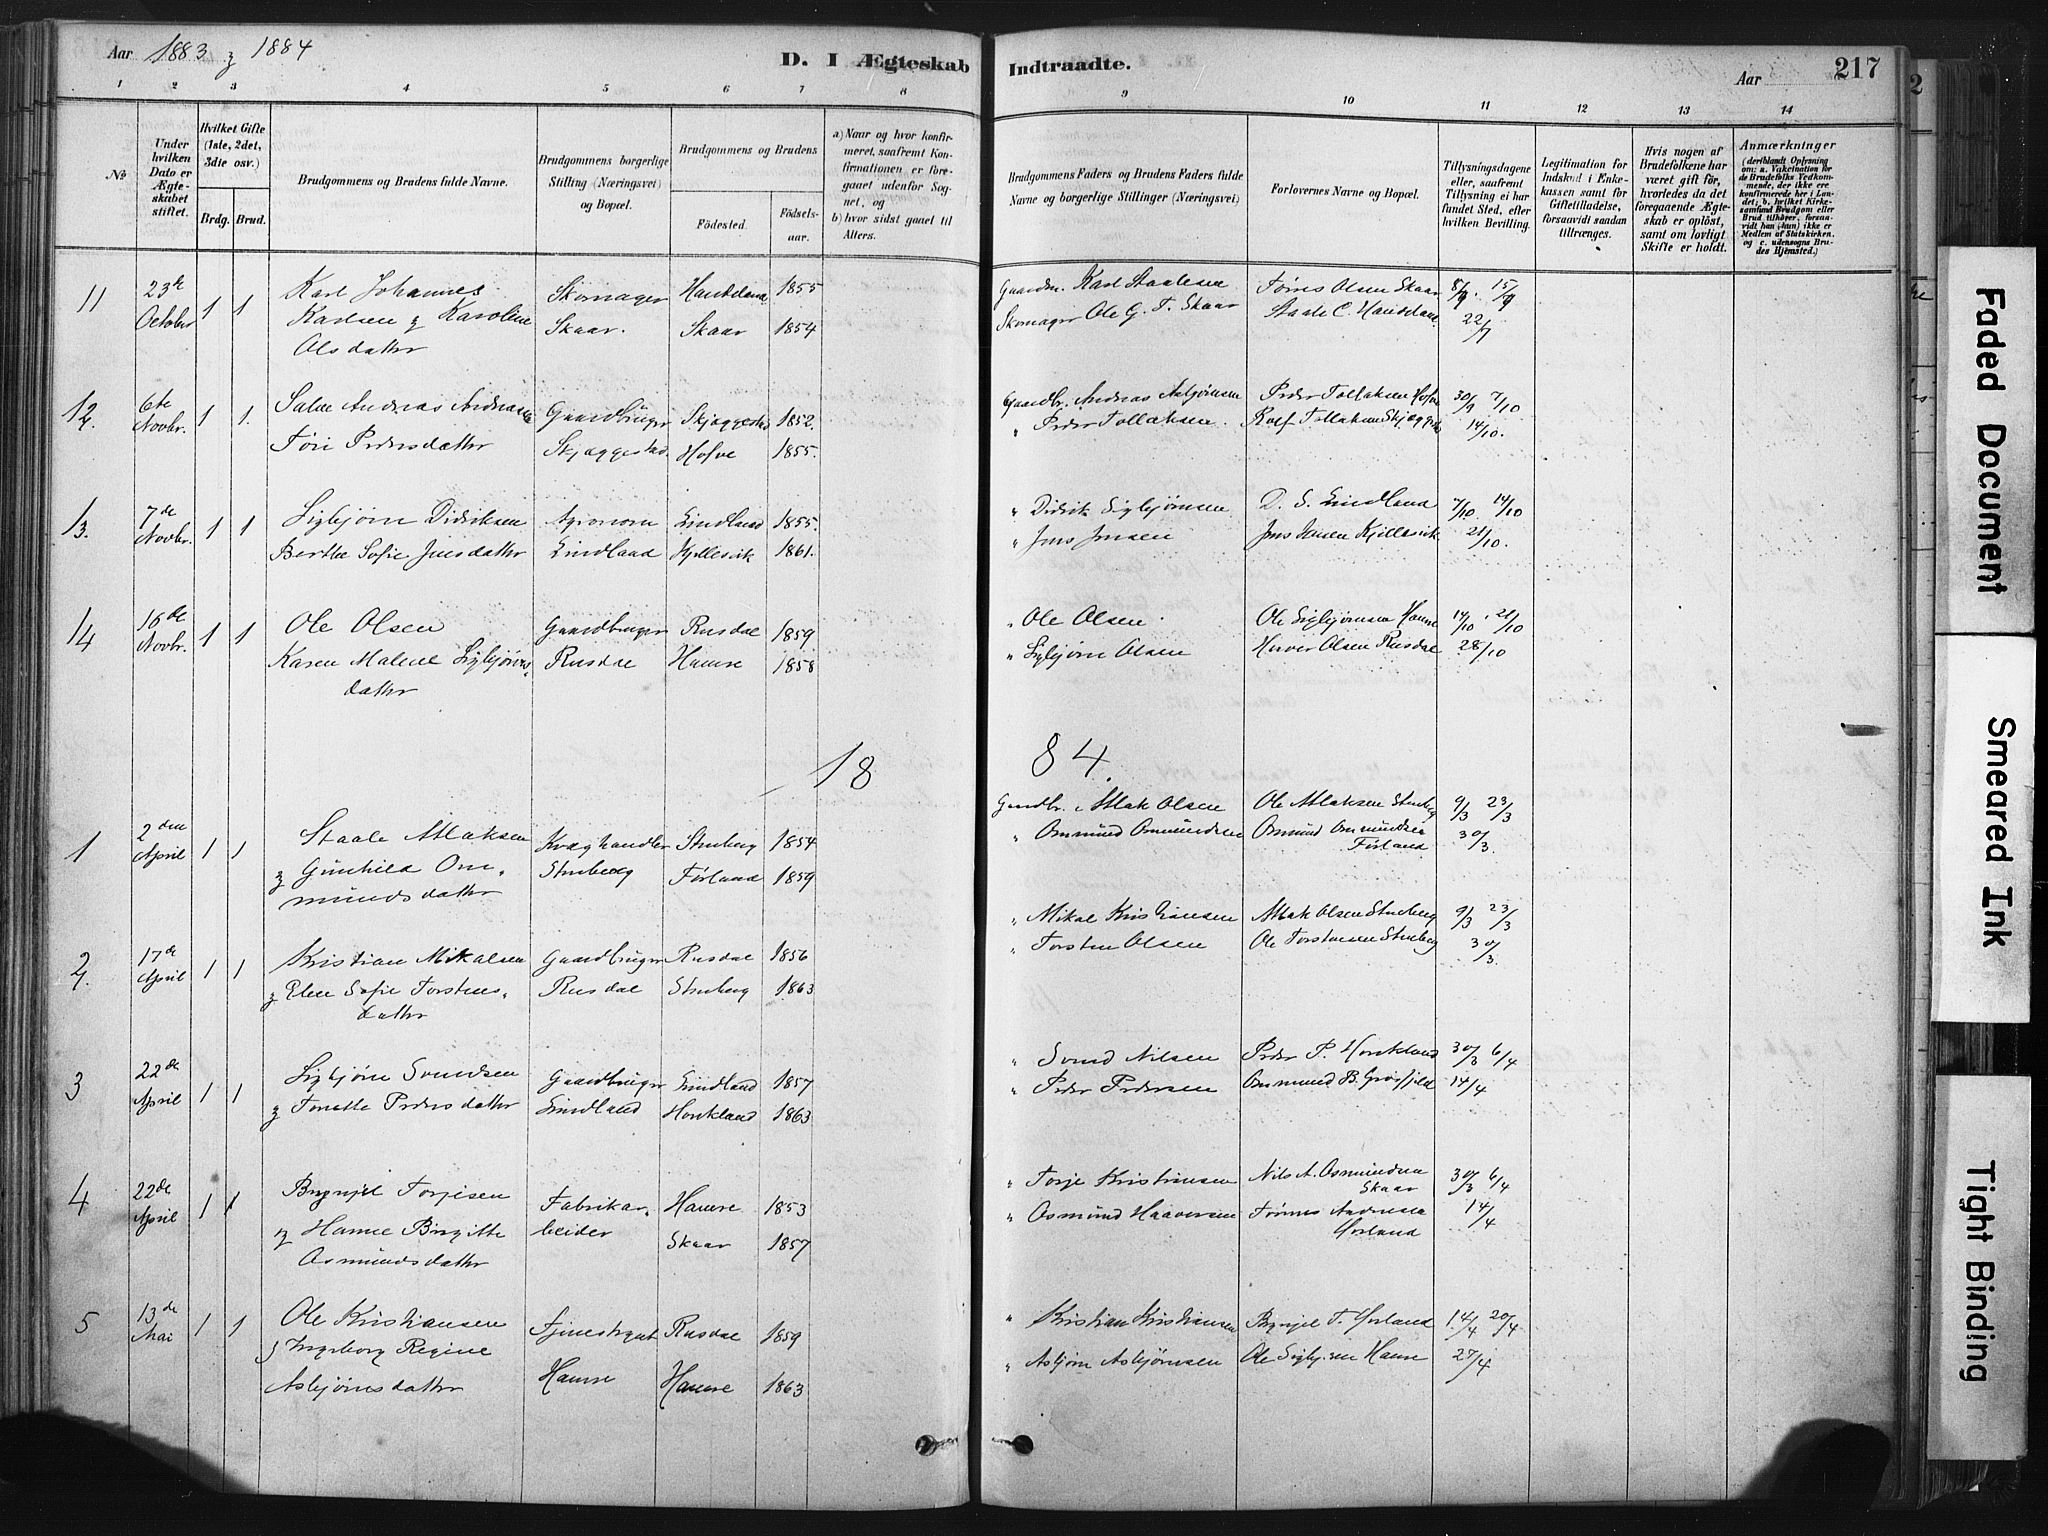 Aar 1883 & 1884
D. I Ægteskab Indtraadte.
Aar 217
1 2 3 4 5 6 7 8 9 10 11 12 13 14
No
Under hvilken Dato er Ægteskabet stiftet.
Hvilket Gifte (1ste, 2det, 3die osv.)
Brdg. Brud.
Brudgommens og Brudens fulde Navne.
Brudgommens borgerlige Stilling (Næringsvei) og Bopæl.
Brudgommens og Brudens
Fødested. Fødselsaar.
a) Naar og hvor konfirmeret, saafremt Konfirmationen er foregaaet udenfor Sognet, og
b) hvor sidst gaaet til Alters.
Brudgommens Faders og Brudens Faders fulde Navne og borgerlige Stillinger (Næringsvei)
Forlovernes Navne og Bopæl.
Tillysningsdagene eller, saafremt Tillysning ei har fundet Sted, efter hvilken Bevilling.
Legitimation for Indskud i Enkekassen samt for Giftetilladelse, forsaavidt saadan tiltrænges.
Hvis nogen af Brudefolkene har været gift før, hvorledes da det foregaaende Ægteskab er opløst, samt om lovligt Skifte er holdt.
Anmærkninger
(deriblandt Oplysning om: a. Vakcination for de Brudefolks Vedkommende, der ikke ere konfirmerede her i Landet; b. hvilket Kirkesamfund Brudgom eller Brud tilhører, forsaavidt han (hun) ikke er Medlem af Statskirken. og c. udensogns Brudes Hjemsted.)
11 23de October 1 1 Karl Johannes Karlsen & Karoline Olsdatter Skomager Skaar. Haneland 1855 Skaar 1854 Gaardm. Karl Staalesen Skomager Ole G. T. Skaar Tønnes Olsen Skaar Staale C. 8/9 15/9 22/9
12 6te Novbr. 1 1. Salve Andreas Andreasen Tøri Pedersdatter Gaardbruger Skjæggestad Skjæggestad 1852. Hofve 1855. Gaardbr. Andreas Asbjørnsen " Peder Tollaksen. Peder Tollaksen Hofve Rolf Tollaksen Skjæggestad 30/9 7/10 14/10.
13. 7de Novbr. 1 1 Sigbjørn Didriksen Berthe Sofie Jensdatter Agronom Lindland Lindland 1855. Kjellesvik 1861. " Didrik Sigbjørnsen " Jens Jensen D. S. Lindland Jens Jensen Kjellesvik 7/10 14/10 21/10
14 16de Novbr. 1 1 Ole Olsen Karen Malene Sigbjørnsdatter Gaardbruger Rusdal Rusdal 1859 Hamre 1858 " Ole Olsen. " Sigbjørn Olsen Ole Sigbjørnsen Hamre Olsen Rusdal 14/10 21/10 28/10
1884.
1 2den April 1 1 Staale Atlaksen & Gunhild Ommundsdatter Kvæghandler Stenberg Stenberg 1854 Førland 1859 Gaardbr. Atlak Olsen " Ommund Ommundsen Ole Atlaksen Stenberg Ommund Ommundsen Førland 9/3 23/3 30/3.
2. 17de April 1 1 Kristian Mikalsen & Elen Sofie Torstensdatter Gaardbruger Rusdal Rusdal 1856 Stenberg 1863 " Mikal Kristiansen " Torsten Olsen Atlak Olsen Stenberg Ole Torstensen Stenberg 9/3 23/3 30/3.
3 22de April 1 1 Sigbjørn Svendsen & Tonette Pedersdatter Gaardbruger Lindland Lindland 1857 Houkland 1863 " Svend Nilsen " Peder Pedersen Peder P. Houkland Ommund B. Grøsfjeld 30/3 6/4 14/4
4 22de April 1 1 Brynjel Torjesen & Hanne Birgitte Osmundsdatter Fabrikarbeider Hamre 1853 Skaar 1857 " Torje Kristiansen " Osmund Haaversen Nils A. Osmundsen Skaar Tønnes Andersen 30/3 6/4 14/4
5 13de Mai 1 1 Ole Kristiansen & Ingeborg Regine Asbjørnsdatter Hamre Rusdal 1859 Hamre 1863 " Kristian Kristiansen " Asbjørn Asbjørnsen Brynjel T. Ole Hamre 14/4 20/4 27/4
Faded Document
Smeared Ink
Tight Binding